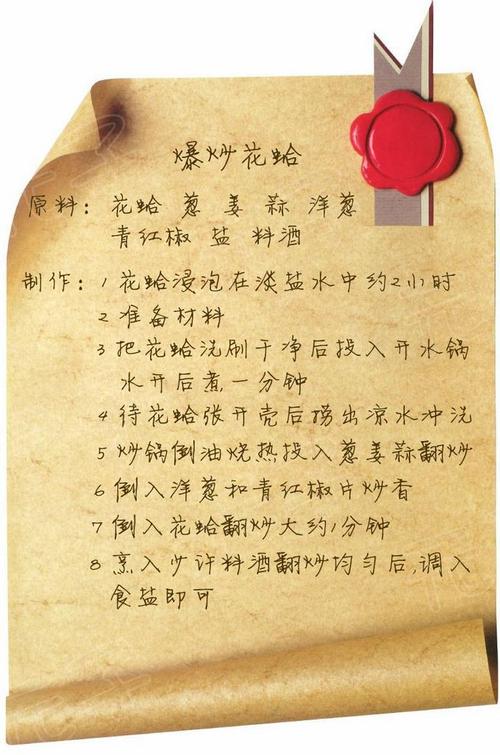 爆炒花蛤
原料：花蛤 葱 姜 蒜 洋葱
青红椒 盐 料酒
制作：1 花蛤浸泡在淡盐水中约2小时
2 准备材料
3 把花蛤洗刷干净后投入开水锅
水开后煮一分钟
4 待花蛤张开壳后捞出凉水冲洗
5 炒锅倒油烧热投入葱姜蒜翻炒
6 倒入洋葱和青红椒片炒香
7 倒入花蛤翻炒大约1分钟
8 烹入少许料酒翻炒均匀后,调入
食盐即可